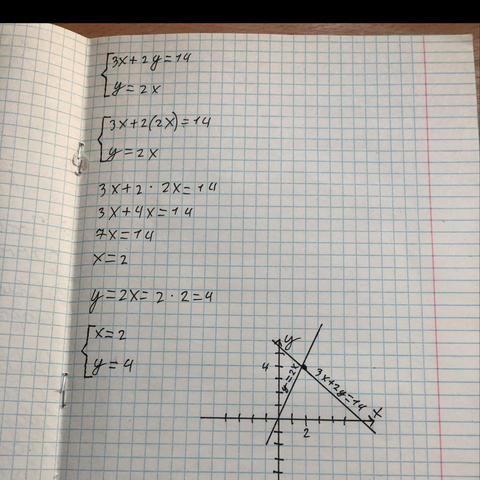 3x+2y=14
y=2x
3x+2(2x)=14
y=2x
3x+2·2x=14
3x+4x=14
7x=14
x=2
y=2x=2·2=4
x=2
y=4
y
4
y=2x
3x+2y=14
x
2